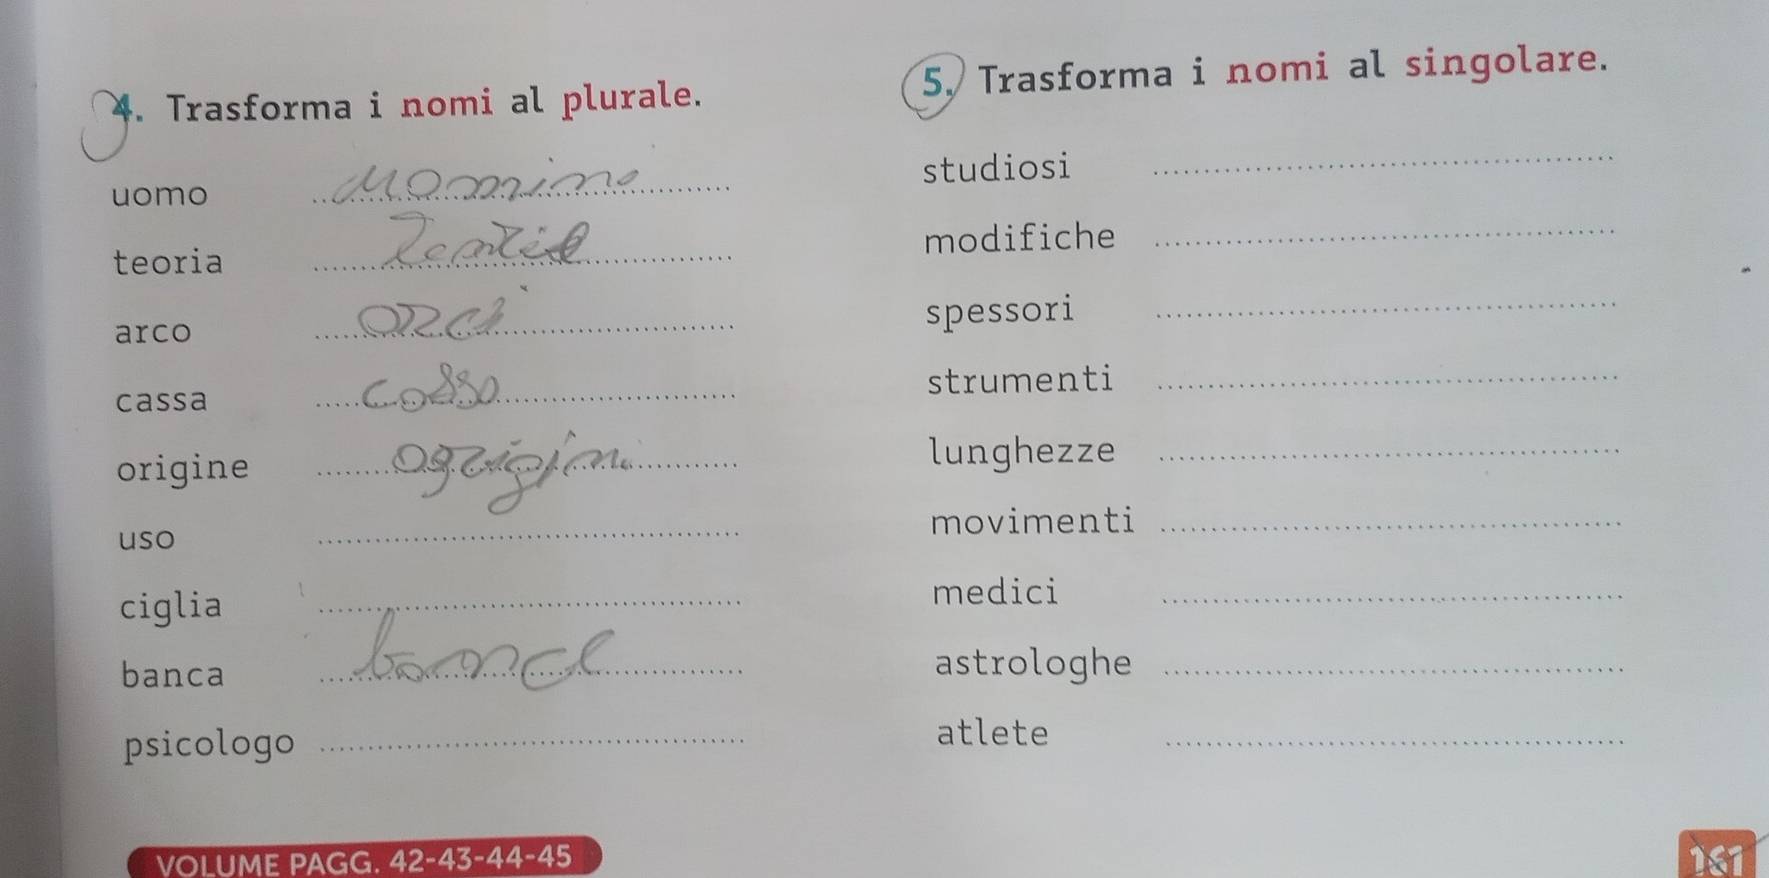 4. Trasforma i nomi al plurale.
uomo uomini
teoria
arco archi
cassa
origine
uso
ciglia
banca
psicologo
5. Trasforma i nomi al singolare.
studiosi
modifiche
spessori
strumenti
lunghezze
movimenti
medici
astrologhe
atlete
VOLUME PAGG. 42-43-44-45
161